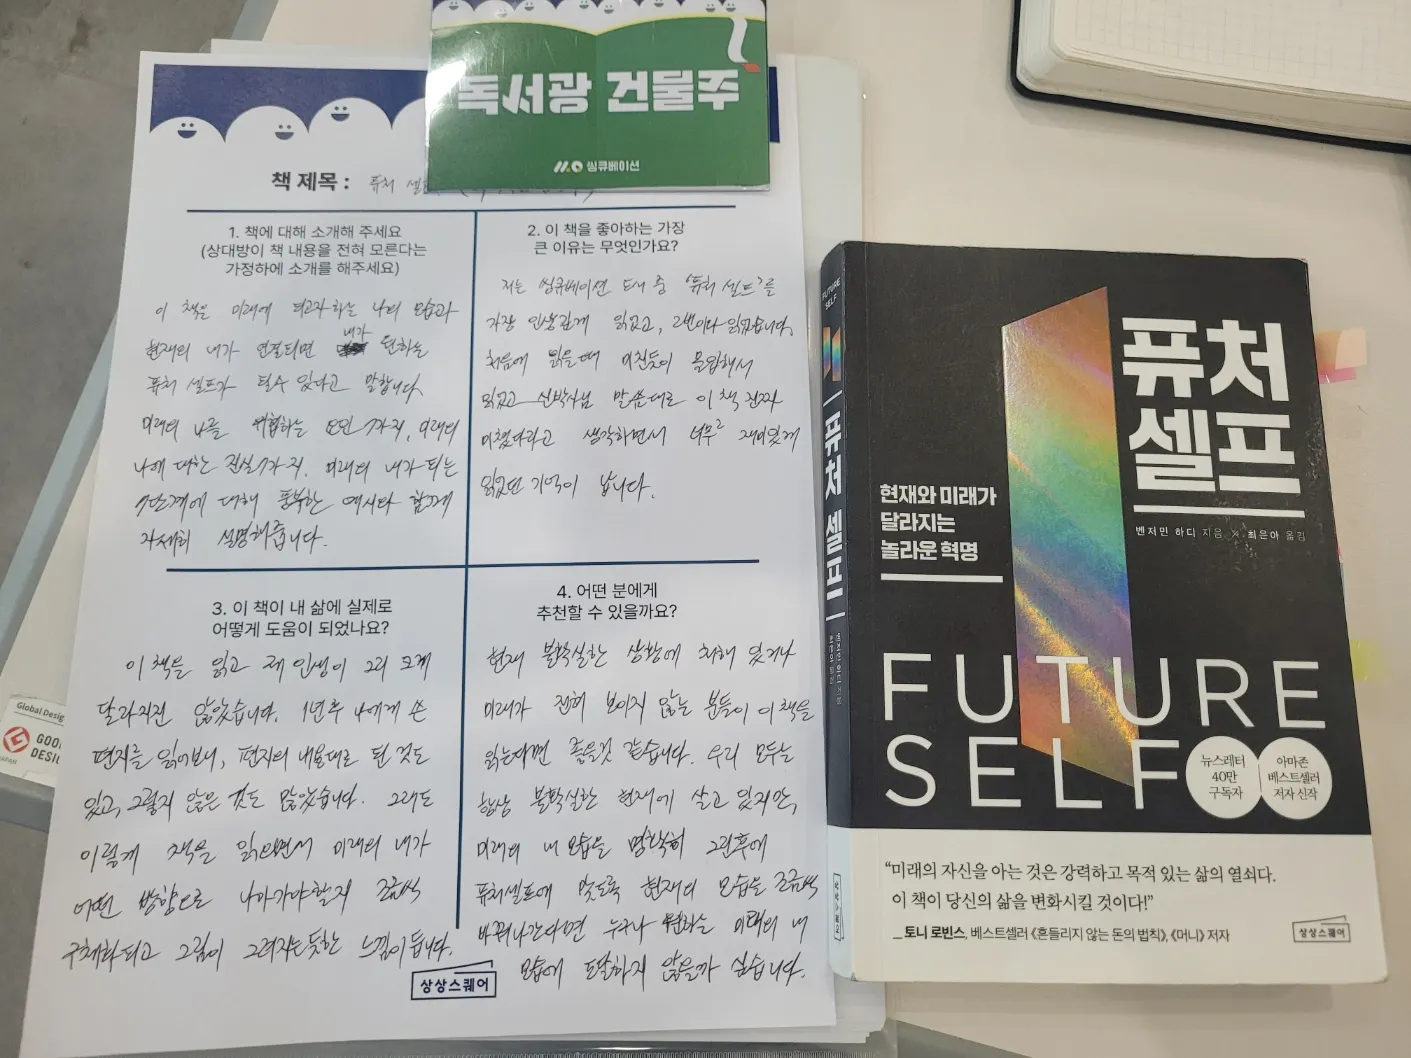 독서광 건물주
씽큐베이션
책 제목 : 퓨처 셀
1. 책에 대해 소개해 주세요
(상대방이 책 내용을 전혀 모른다는
가정하에 소개를 해주세요)
이 책은 미래에 되고자 하는 나의 모습과
현재의 내가 연결되면 내가 원하는
퓨처 셀프가 될수 있다고 말합니다.
미래의 나를 위협하는 요인 7가지, 미래의
나에 대한 진실 7가지, 미래의 내가 되는
7단계에 대해 풍부한 예시와 함께
자세히 설명해줍니다.
2. 이 책을 좋아하는 가장
큰 이유는 무엇인가요?
저는 씽큐베이션 도서 중 '퓨처 셀프'를
가장 인상깊게 읽었고, 2번이나 읽었습니다.
처음에 읽을때 미친듯이 몰입해서
읽었고 신박사님 말씀대로 이 책 진짜
미쳤다라고 생각하면서 너무2 재미있게
읽었던 기억이 납니다.
3. 이 책이 내 삶에 실제로
어떻게 도움이 되었나요?
이 책을 읽고 제 인생이 그리 크게
달라지진 않았습니다. 1년후 나에게 쓴
편지를 읽어보니, 편지의 내용대로 된 것도
있고, 그렇지 않은 것도 많았습니다. 그래도
이렇게 책을 읽으면서 미래의 내가
어떤 방향으로 나아가야할지 조금씩
구체화되고 그림이 그려지는듯한 느낌이 듭니다.
4. 어떤 분에게
추천할 수 있을까요?
현재 불확실한 상황에 처해 있거나
미래가 전혀 보이지 않는 분들이 이 책을
읽는다면 좋을것 같습니다. 우리 모두는
항상 불확실한 현재에 살고 있지만,
미래의 내 모습을 명확히 그린후에
퓨처셀프에 맞도록 현재의 모습을 조금씩
바꿔나간다면 누구나 원하는 미래의 내
모습에 도달하지 않을까 싶습니다.
상상스퀘어
Global Desig
GOO
DESIG
FUTURE
SELF
퓨처 셀프
상상스퀘어
퓨처
셀프
현재와 미래가
달라지는
놀라운 혁명
벤저민 하디 지음 × 최은아 옮김
FUTURE
SELF
뉴스레터
40만
구독자
아마존
베스트셀러
저자 신작
“미래의 자신을 아는 것은 강력하고 목적 있는 삶의 열쇠다.
이 책이 당신의 삶을 변화시킬 것이다!”
_토니 로빈스, 베스트셀러 《흔들리지 않는 돈의 법칙》, 《머니》 저자
상상스퀘어